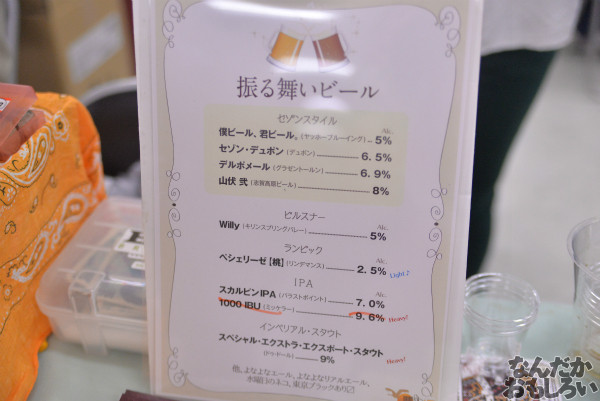 振る舞いビール
セゾンスタイル
Alc.
僕ビール、君ビール。(ヤッホーブルーイング) 5%
セゾン・デュポン(デュポン) 6.5%
デルボメール(グラゼントールン) 6.9%
山伏 弐(志賀高原ビール) 8%
ピルスナー
Alc.
Willy(キリンスプリングバレー) 5%
ランビック
Alc.
ペシェリーゼ【桃】(リンデマンス) 2.5% Light♪
IPA
Alc.
スカルピンIPA(バラストポイント) 7.0%
1000 IBU(ミッケラー) 9.6% Heavy!
インペリアル・スタウト
スペシャル・エクストラ・エクスポート・スタウト
(デ・ドール) 9% Heavy!
他、よなよなエール、よなよなリアルエール、
水曜日のネコ、東京ブラックあり〼
なんだか
おもしろい